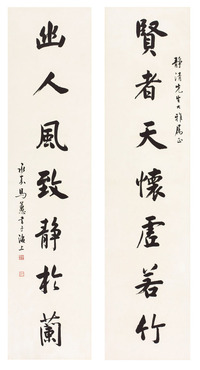 賢者天懷虛若竹
靜清先生大雅屬正
幽人風致靜於蘭
永嘉馬蕙書于海上